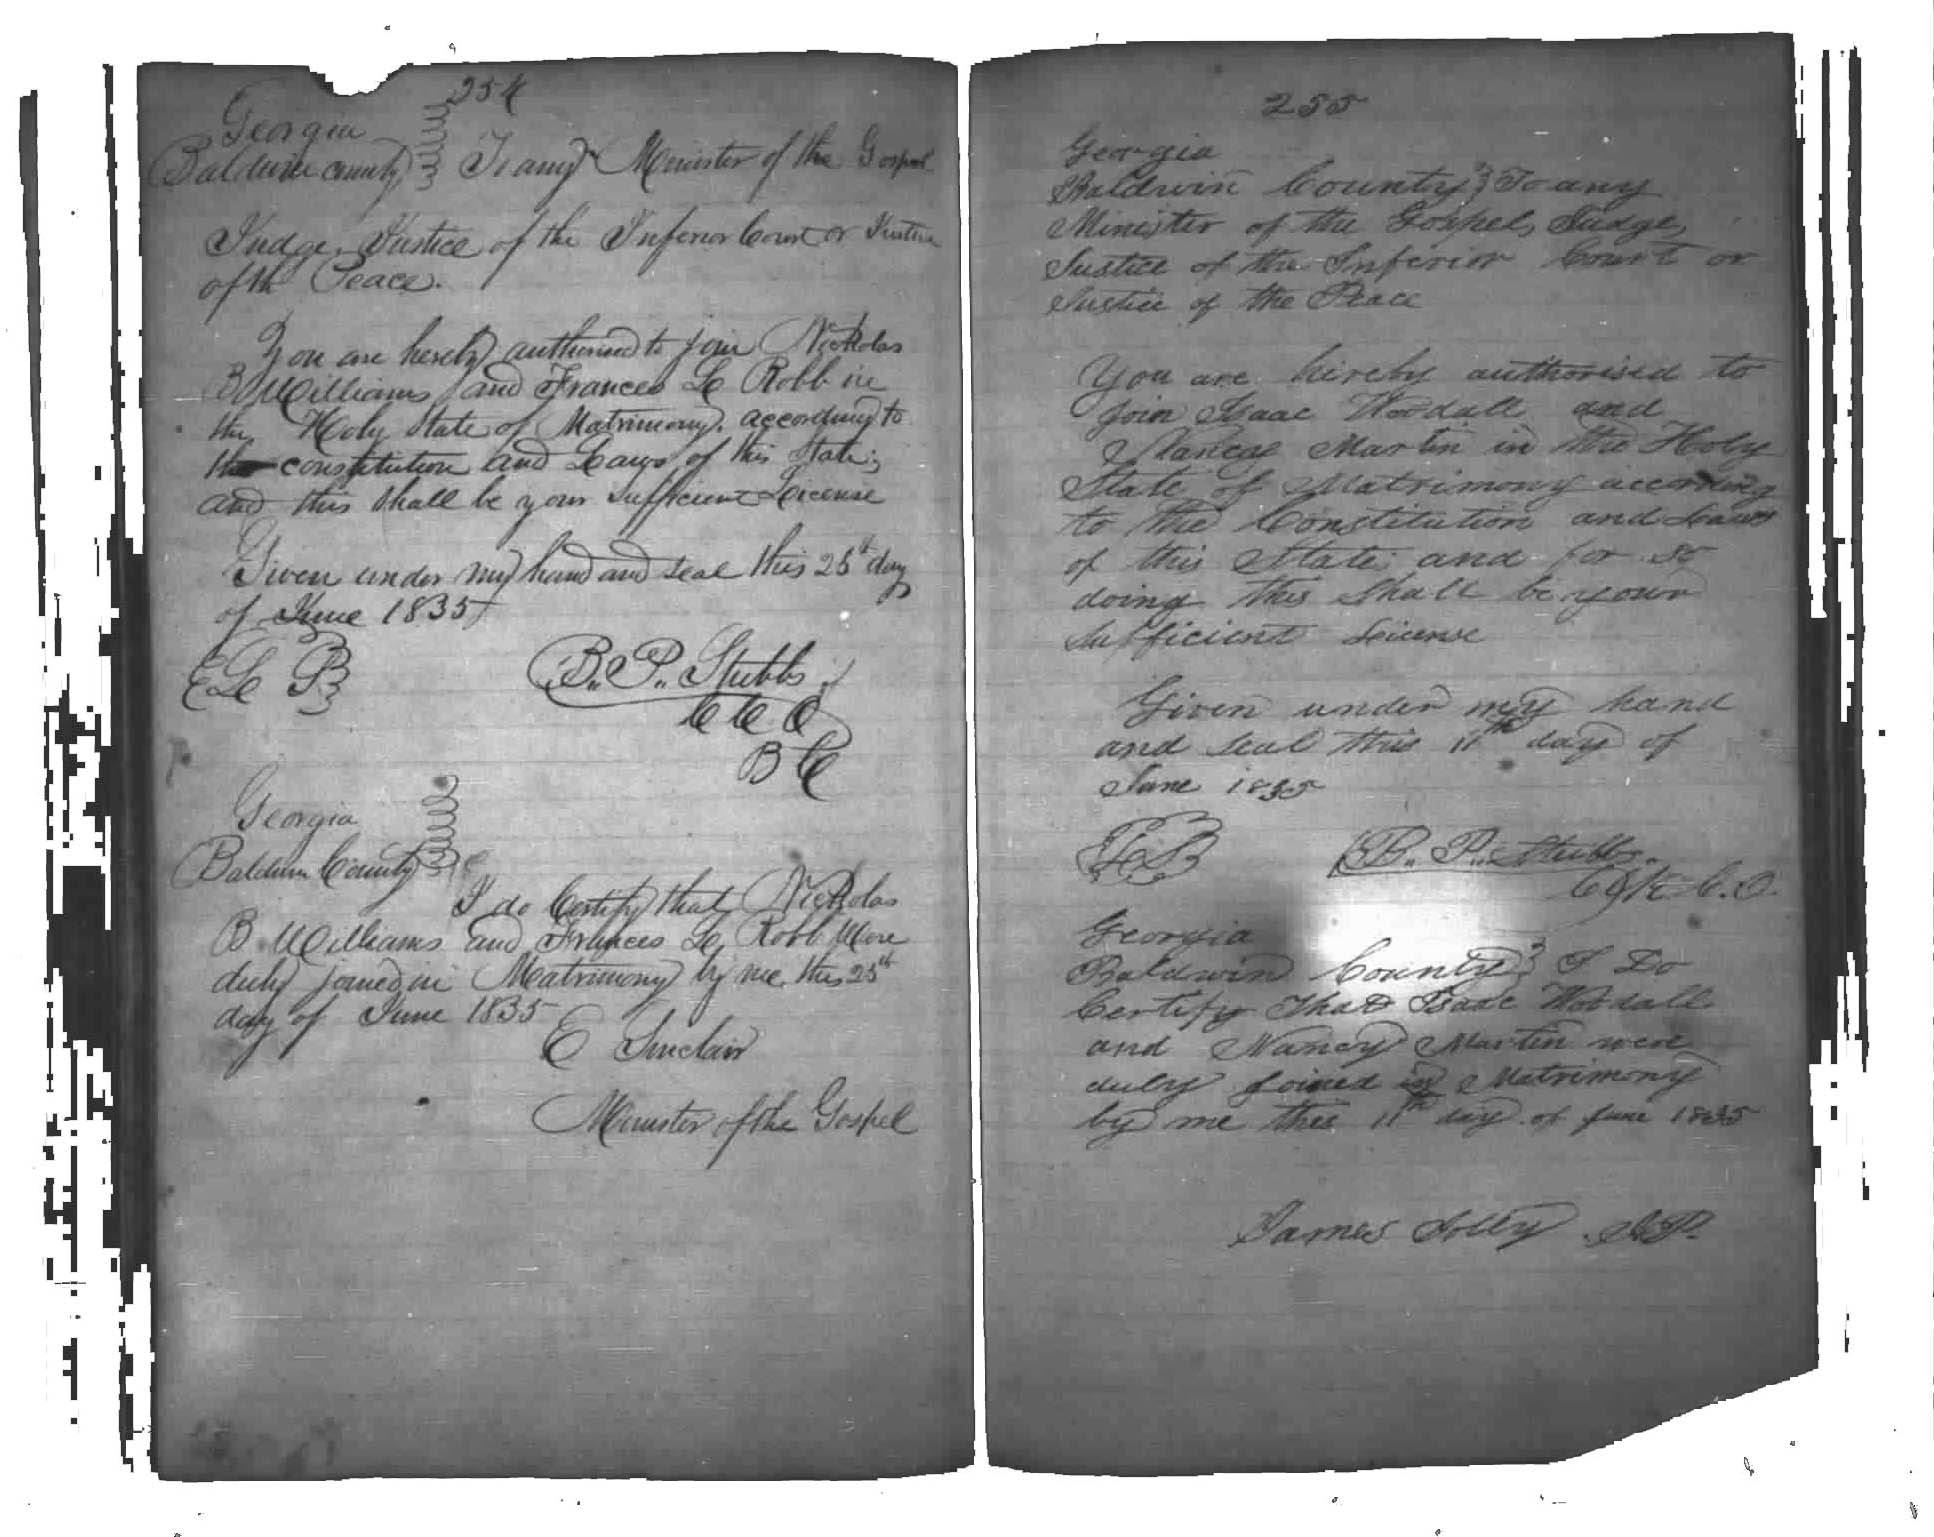 254
Georgia
Baldwin County To any Minister of the Gospel
Judge, Justice of the Inferior Court or Justice
of the Peace.
You are hereby authorised to join Nicholas
B Williams and Frances L Robb in
the Holy State of Matrimony. according to
the constitution and Laws of this State;
and this shall be your sufficient License
Given under my hand and seal this 25th day
of June 1835
B.. P.. Stubbs
C C O
B C
Georgia
Baldwin County
I do Certify that Nicholas
B Williams and Frances L Robb Were
duly joined in Matrimony by me this 25th
day of June 1835
E Sinclair
Minister of the Gospel
255
Georgia
Baldwin County } To any
Minister of the Gospel, Judge,
Justice of the Inferior Court or
Justice of the Peace
You are hereby authorised to
join Isaac Woodall and
Nancy Martin in the Holy
State of Matrimony according
to the Constitution and Laws
of this State; and for so
doing this shall be your
sufficient License
Given under my hand
and seal this 11th day of
June 1835
LS
B.. P.. Stubbs.
Clk C.O.
Georgia
Baldwin County } I Do
Certify That Isaac Woodall
and Nancy Martin were
duly joined in Matrimony
by me this 11th day of June 1835
James Jolly. J.P.